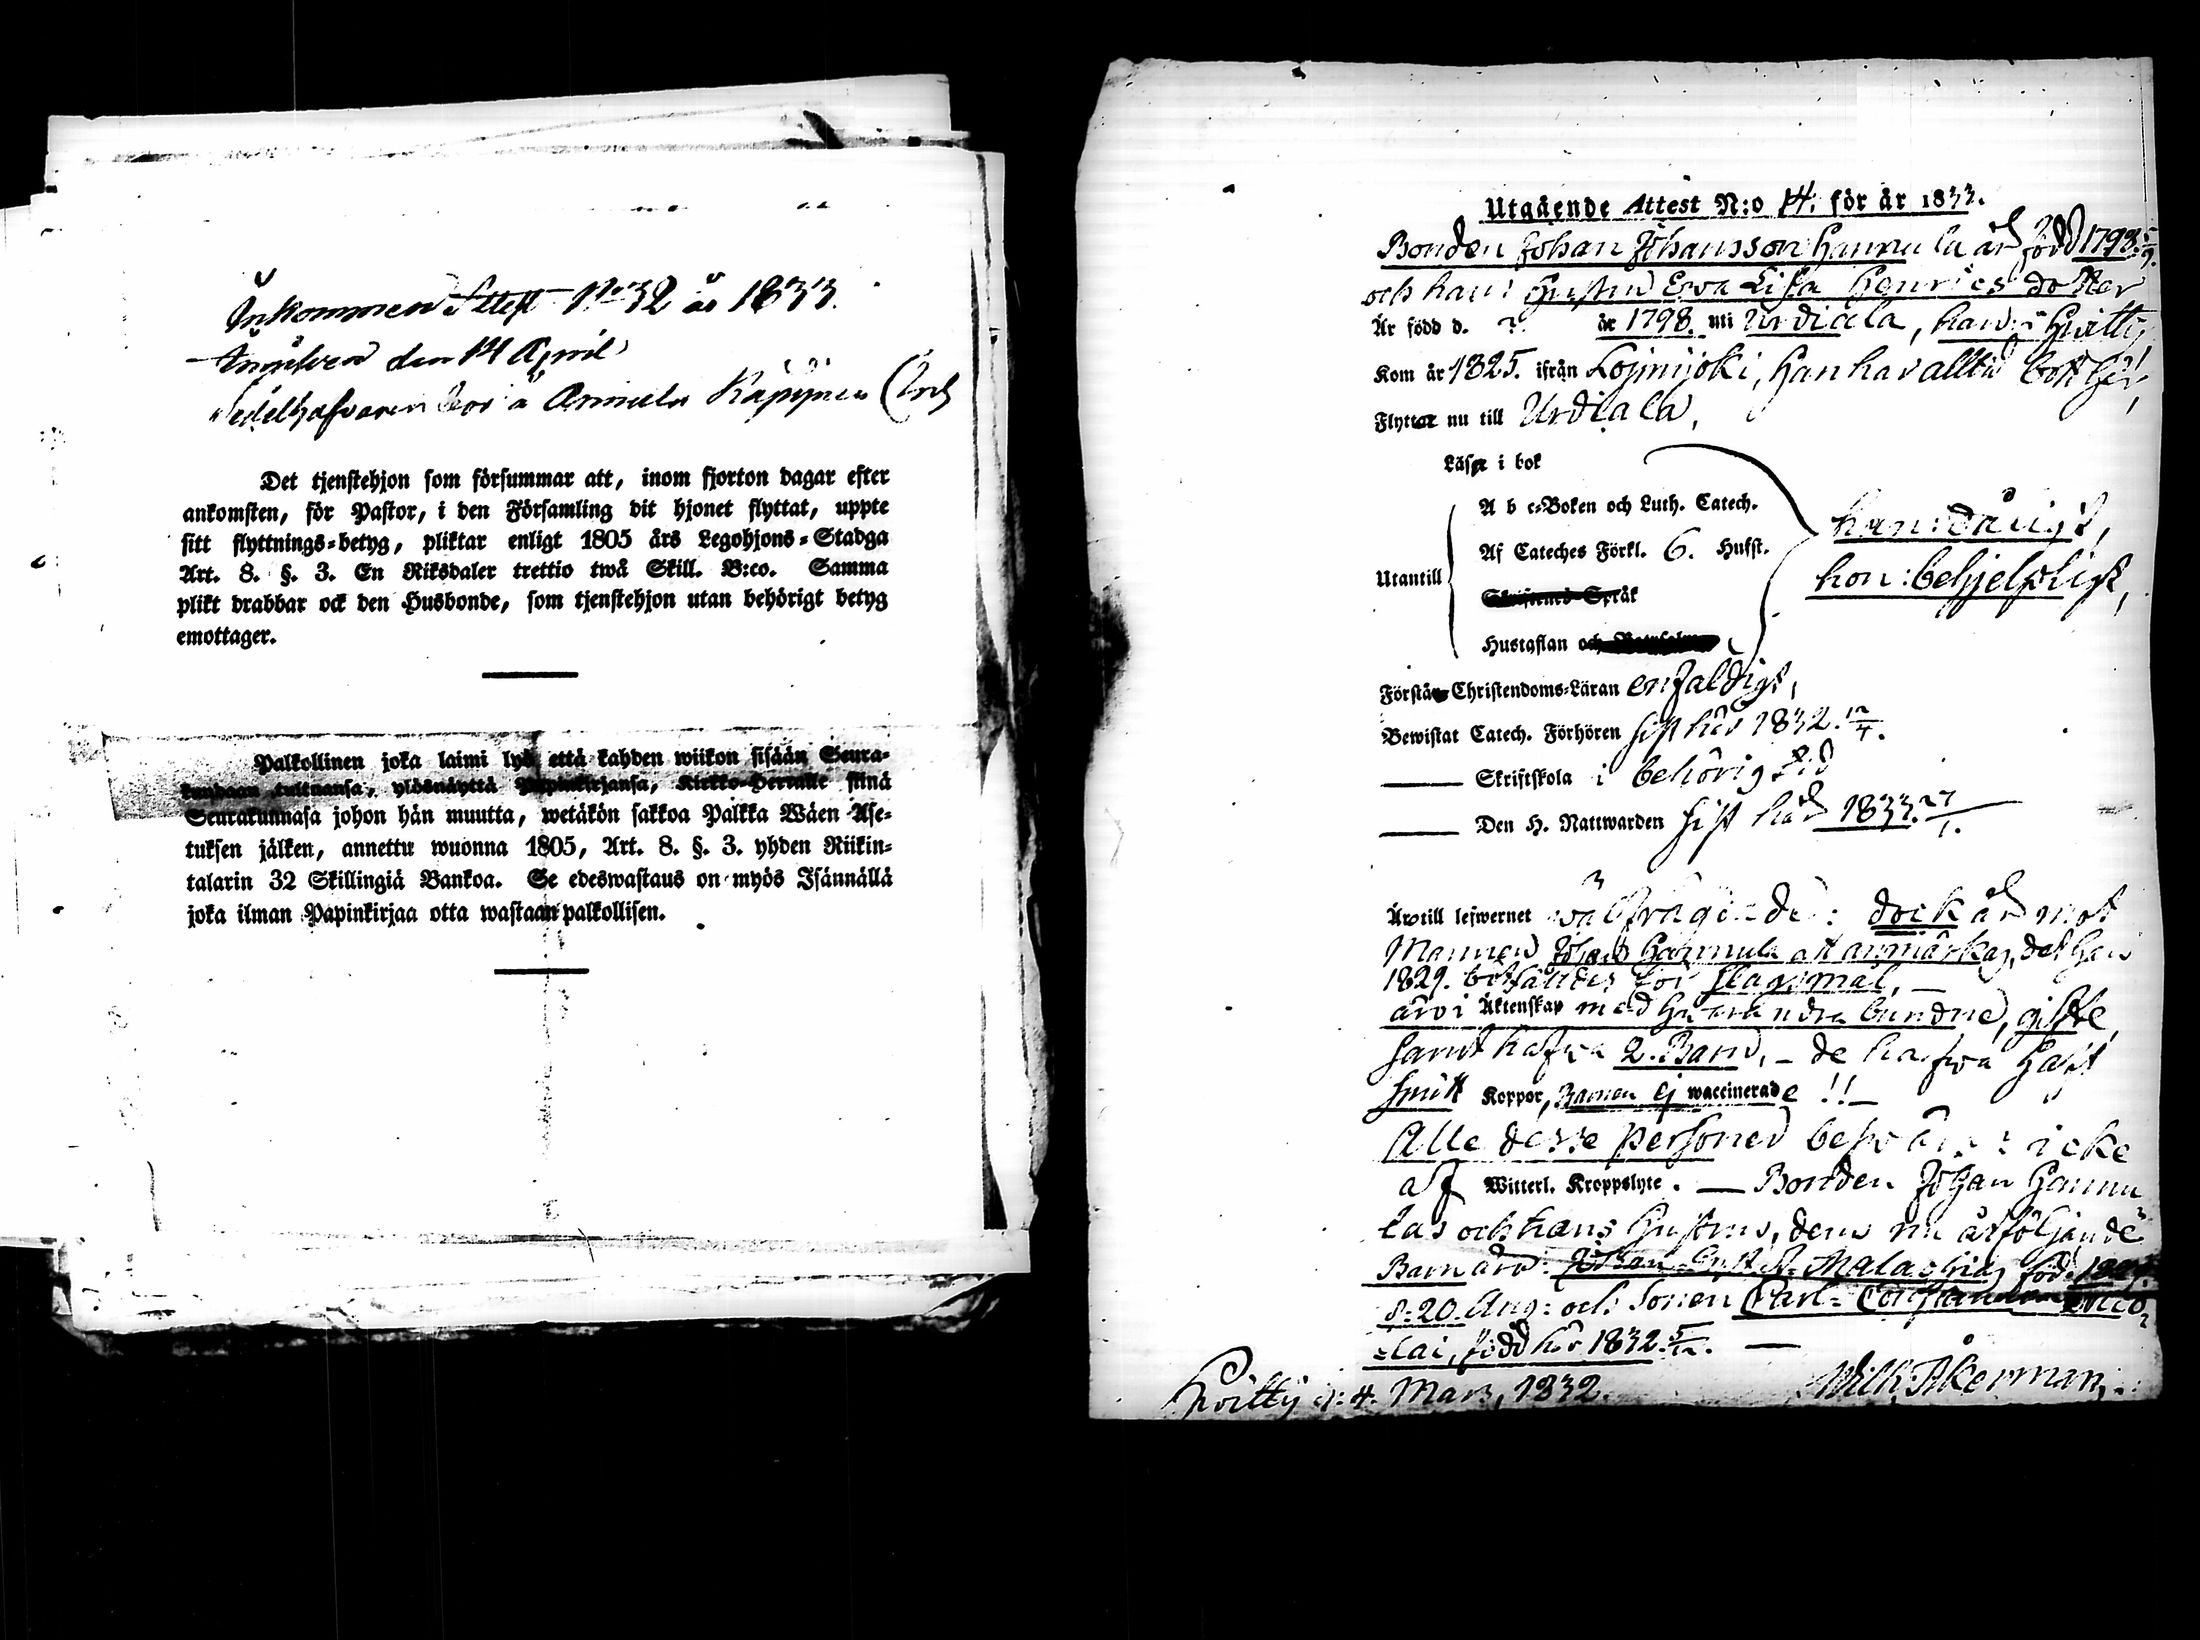 Inkommen Attest No 32 år 1833.
den 14 April
Det tjenstehjon som försummar att, inom fjorton dagar efter
ankomsten, för Pastor, i den Församling dit hjonet flyttat, uppte
sitt flyttnings-betyg, pliktar enligt 1805 års Legohjons-Stadga
Art. 8. §. 3. En Riksdaler trettio twå Skill. B:co. Samma
plikt drabbar ock den Husbonde, som tjenstehjon utan behörigt betyg
emottager.
Palkollinen joka laimi lyö että kahden wiikon sisään Seura-
kundaan tultuansa, ylösnäyttä Papinkirjansa, Kirkko-Herralle siinä
Seurakunnasa johon hän muutta, wetäkön sakkoa Palkka Wäen Ase-
tuksen jälken, annettu wuonna 1805, Art. 8. §. 3. yhden Riikin-
talarin 32 Skillingiä Bankoa. Se edeswastaus on myös Isännällä
joka ilman Papinkirjaa otta wastaan palkollisen.
Utgående Attest N:o 14. för år 1833.
Bonden Johan Johansson Hannula är född 1798
och hans Hustru Ewa Lisa Henricsdotter
Är född d. ? år 1798 uti Urdiala, han i Hvittis,
Kom år 1825. ifrån Lojmijoki, Han har alltid bott här,
Flyttar nu till Urdiala,
Läser i bok
A b c-Boken och Luth. Catech.
han: dåligt,
Af Cateches Förkl. 6. Hufst.
hon: behjelpligt,
Utantill
Språk
Hustaflan och
Förstå Christendoms-Läran enfaldigt,
Bewistat Catech. Förhören sist här 1832.
Skriftskola i behörig tid
Den H. Nattwarden sist här 1833. 27/1.
Äro till lefwernet wälfrägdade: dock är mot
Mannen Johan Hannula att anmärka, det han
1829. botfälldes för slagsmål, —
äro i Äktenskap med hvarandra bundne, gifte,
samt hafwa 2. Barn, - de hafwa haft
smitt Koppor, Barnen ej waccinerade !! —
Alle desse personer beswäras icke
af Witterl. Kroppslyte. — Bonden Johan Hannu
las och hans Hustrus, dem nu åtföljande
Barn äro: Johan Malachias född
d: 20. Aug: och Sonen Carl
-lai, född här 1832. 5/12. —
Hvittis d: 4. Mars, 1832.
Wilh. Åkerman,